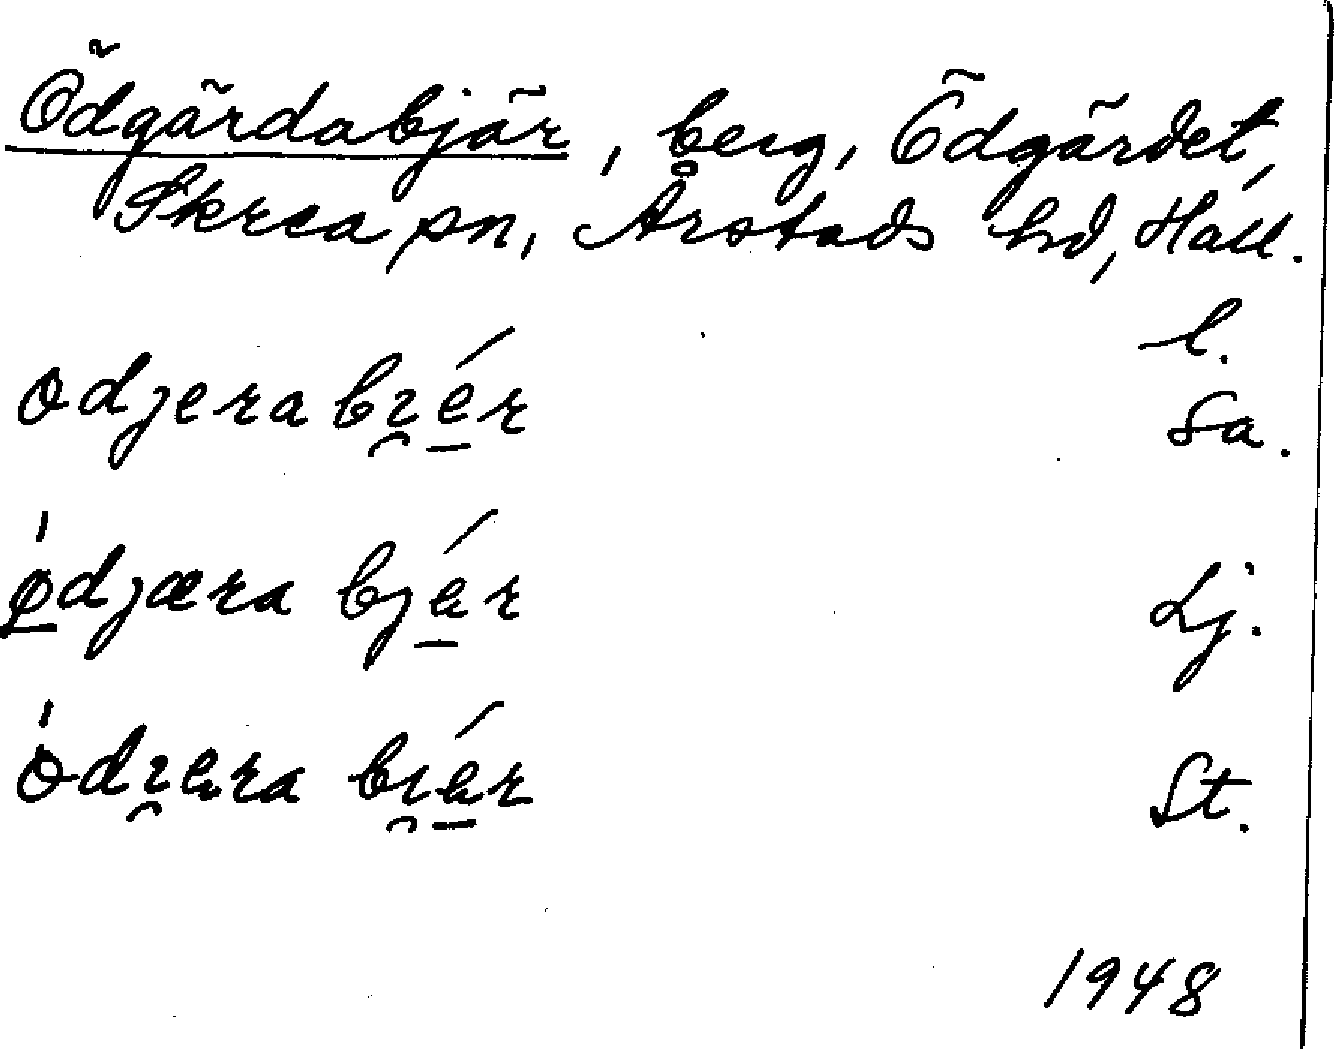 Ödgärdabjär, berg, Ödgärdet,
Skrea sn, Årstads hd, Hall.
l.
odjerabɪ̯é̠r Sa.
ǫ́djæra bjǽ̠r Lj.
ódɪ̯æra bɪ̯ǽ̠r St.
1948